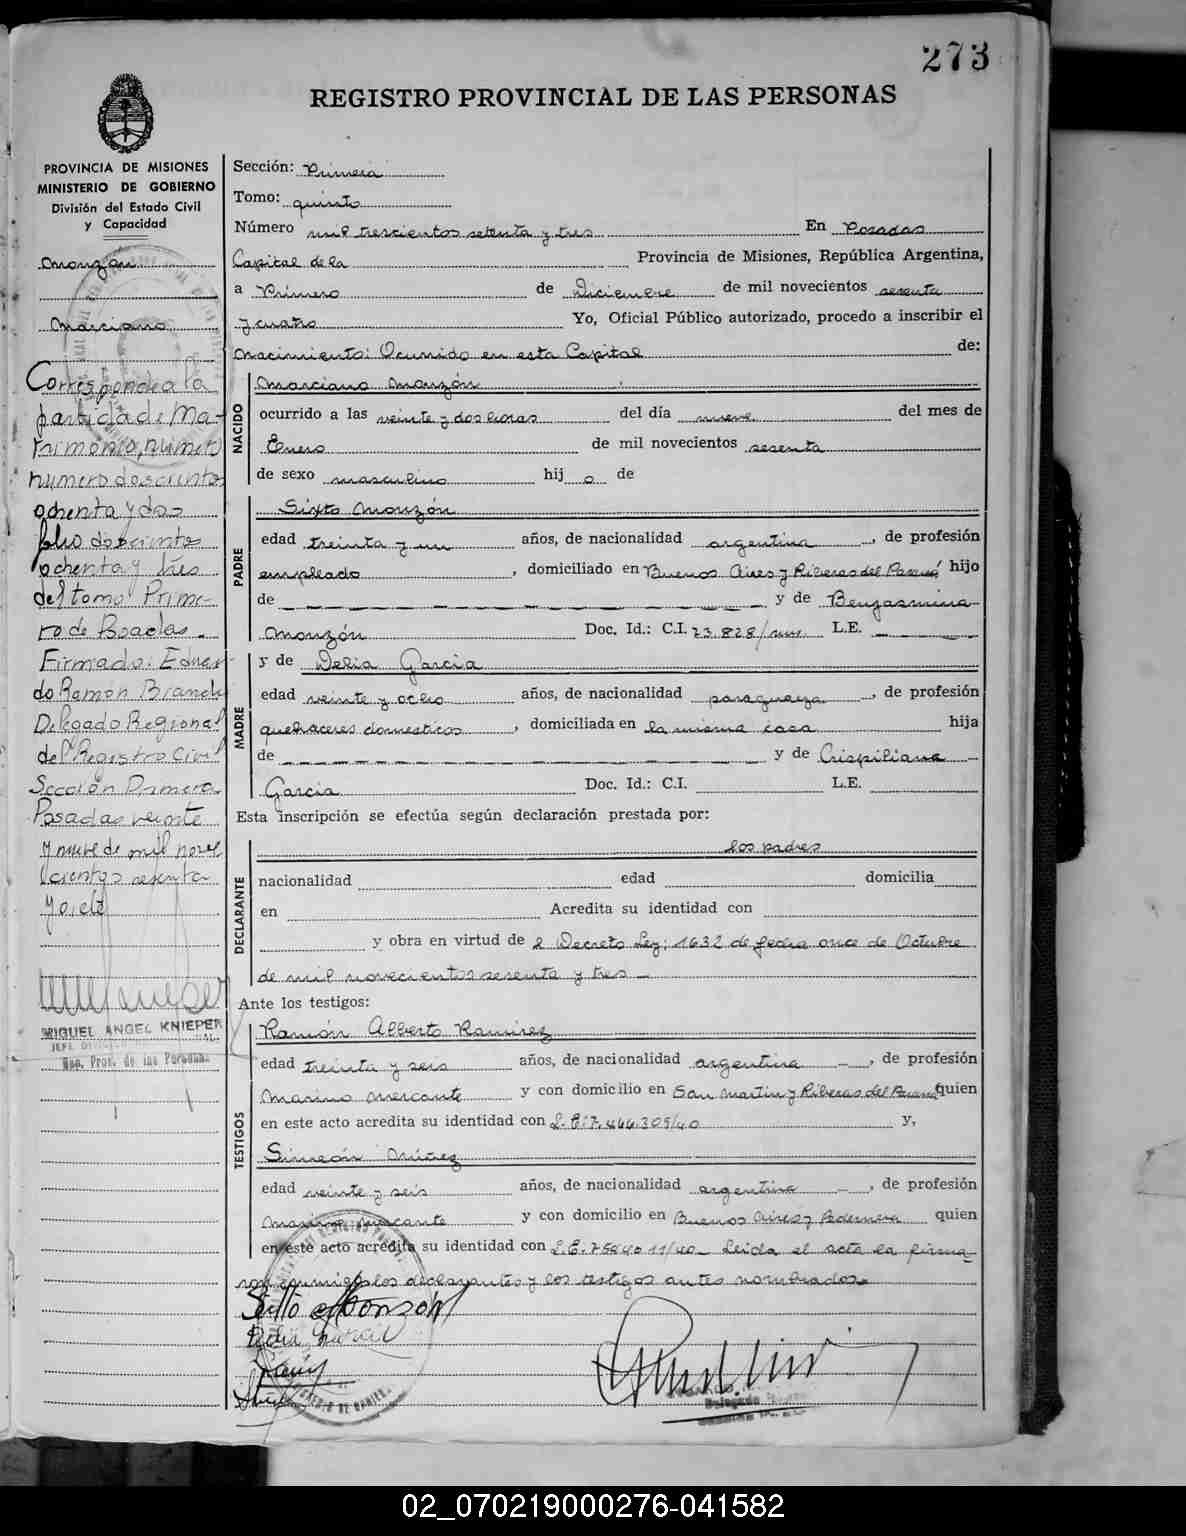 273
REGISTRO PROVINCIAL DE LAS PERSONAS
PROVINCIA DE MISIONES
MINISTERIO DE GOBIERNO
División del Estado Civil
y Capacidad
Monzón
Marciano
Corresponde a la
partida de Ma-
trimonio, numero
numero doscientos
ochenta y dos
folio doscientos
ochenta y tres
del tomo Prime-
ro de Posadas.
Firmado: Eduar-
do Ramón Brandy
Delegado Regional
del Registro Civil
Sección Primera
Posadas veinte
y nueve de mil nove
cientos sesenta
y siete
MIGUEL ANGEL KNIEPER
Sección: Primera
Tomo: quinto
Número mil trescientos setenta y tres En Posadas
Capital de la Provincia de Misiones, República Argentina,
a Primero de Diciembre de mil novecientos sesenta
y cuatro Yo, Oficial Público autorizado, procedo a inscribir el
nacimiento: Ocurrido en esta Capital de:
NACIDO
Marciano Monzón
ocurrido a las veinte y dos horas del día nueve del mes de
Enero de mil novecientos sesenta
de sexo masculino hij o de
PADRE
Sixto Monzón
edad treinta y un años, de nacionalidad argentina, de profesión
empleado, domiciliado en Buenos Aires y Riberas del Paraná hijo
de y de Benjasmina
Monzón Doc. Id.: C.I. 23.828/ L.E.
MADRE
y de Delia García
edad veinte y ocho años, de nacionalidad paraguaya, de profesión
quehaceres domesticos, domiciliada en la misma casa hija
de y de Crispiliana
García Doc. Id.: C.I. L.E.
Esta inscripción se efectúa según declaración prestada por:
DECLARANTE
los padres
nacionalidad edad domicilia
en Acredita su identidad con
y obra en virtud de Decreto Ley: 1632 de fecha once de Octubre
de mil novecientos sesenta y tres
Ante los testigos:
TESTIGOS
Ramón Alberto Ramirez
edad treinta y seis años, de nacionalidad argentina, de profesión
Marino Mercante y con domicilio en San Martin y Riberas del Paraná quien
en este acto acredita su identidad con y,
Simeón Núñez
edad veinte y seis años, de nacionalidad argentina, de profesión
Marino Mercante y con domicilio en Buenos Aires y Pedernera quien
en este acto acredita su identidad con L.E. Leida el acta la firma-
ron conmigo los declarantes y los testigos antes nombrados.
Sixto Monzón
Delia García
02_070219000276-041582